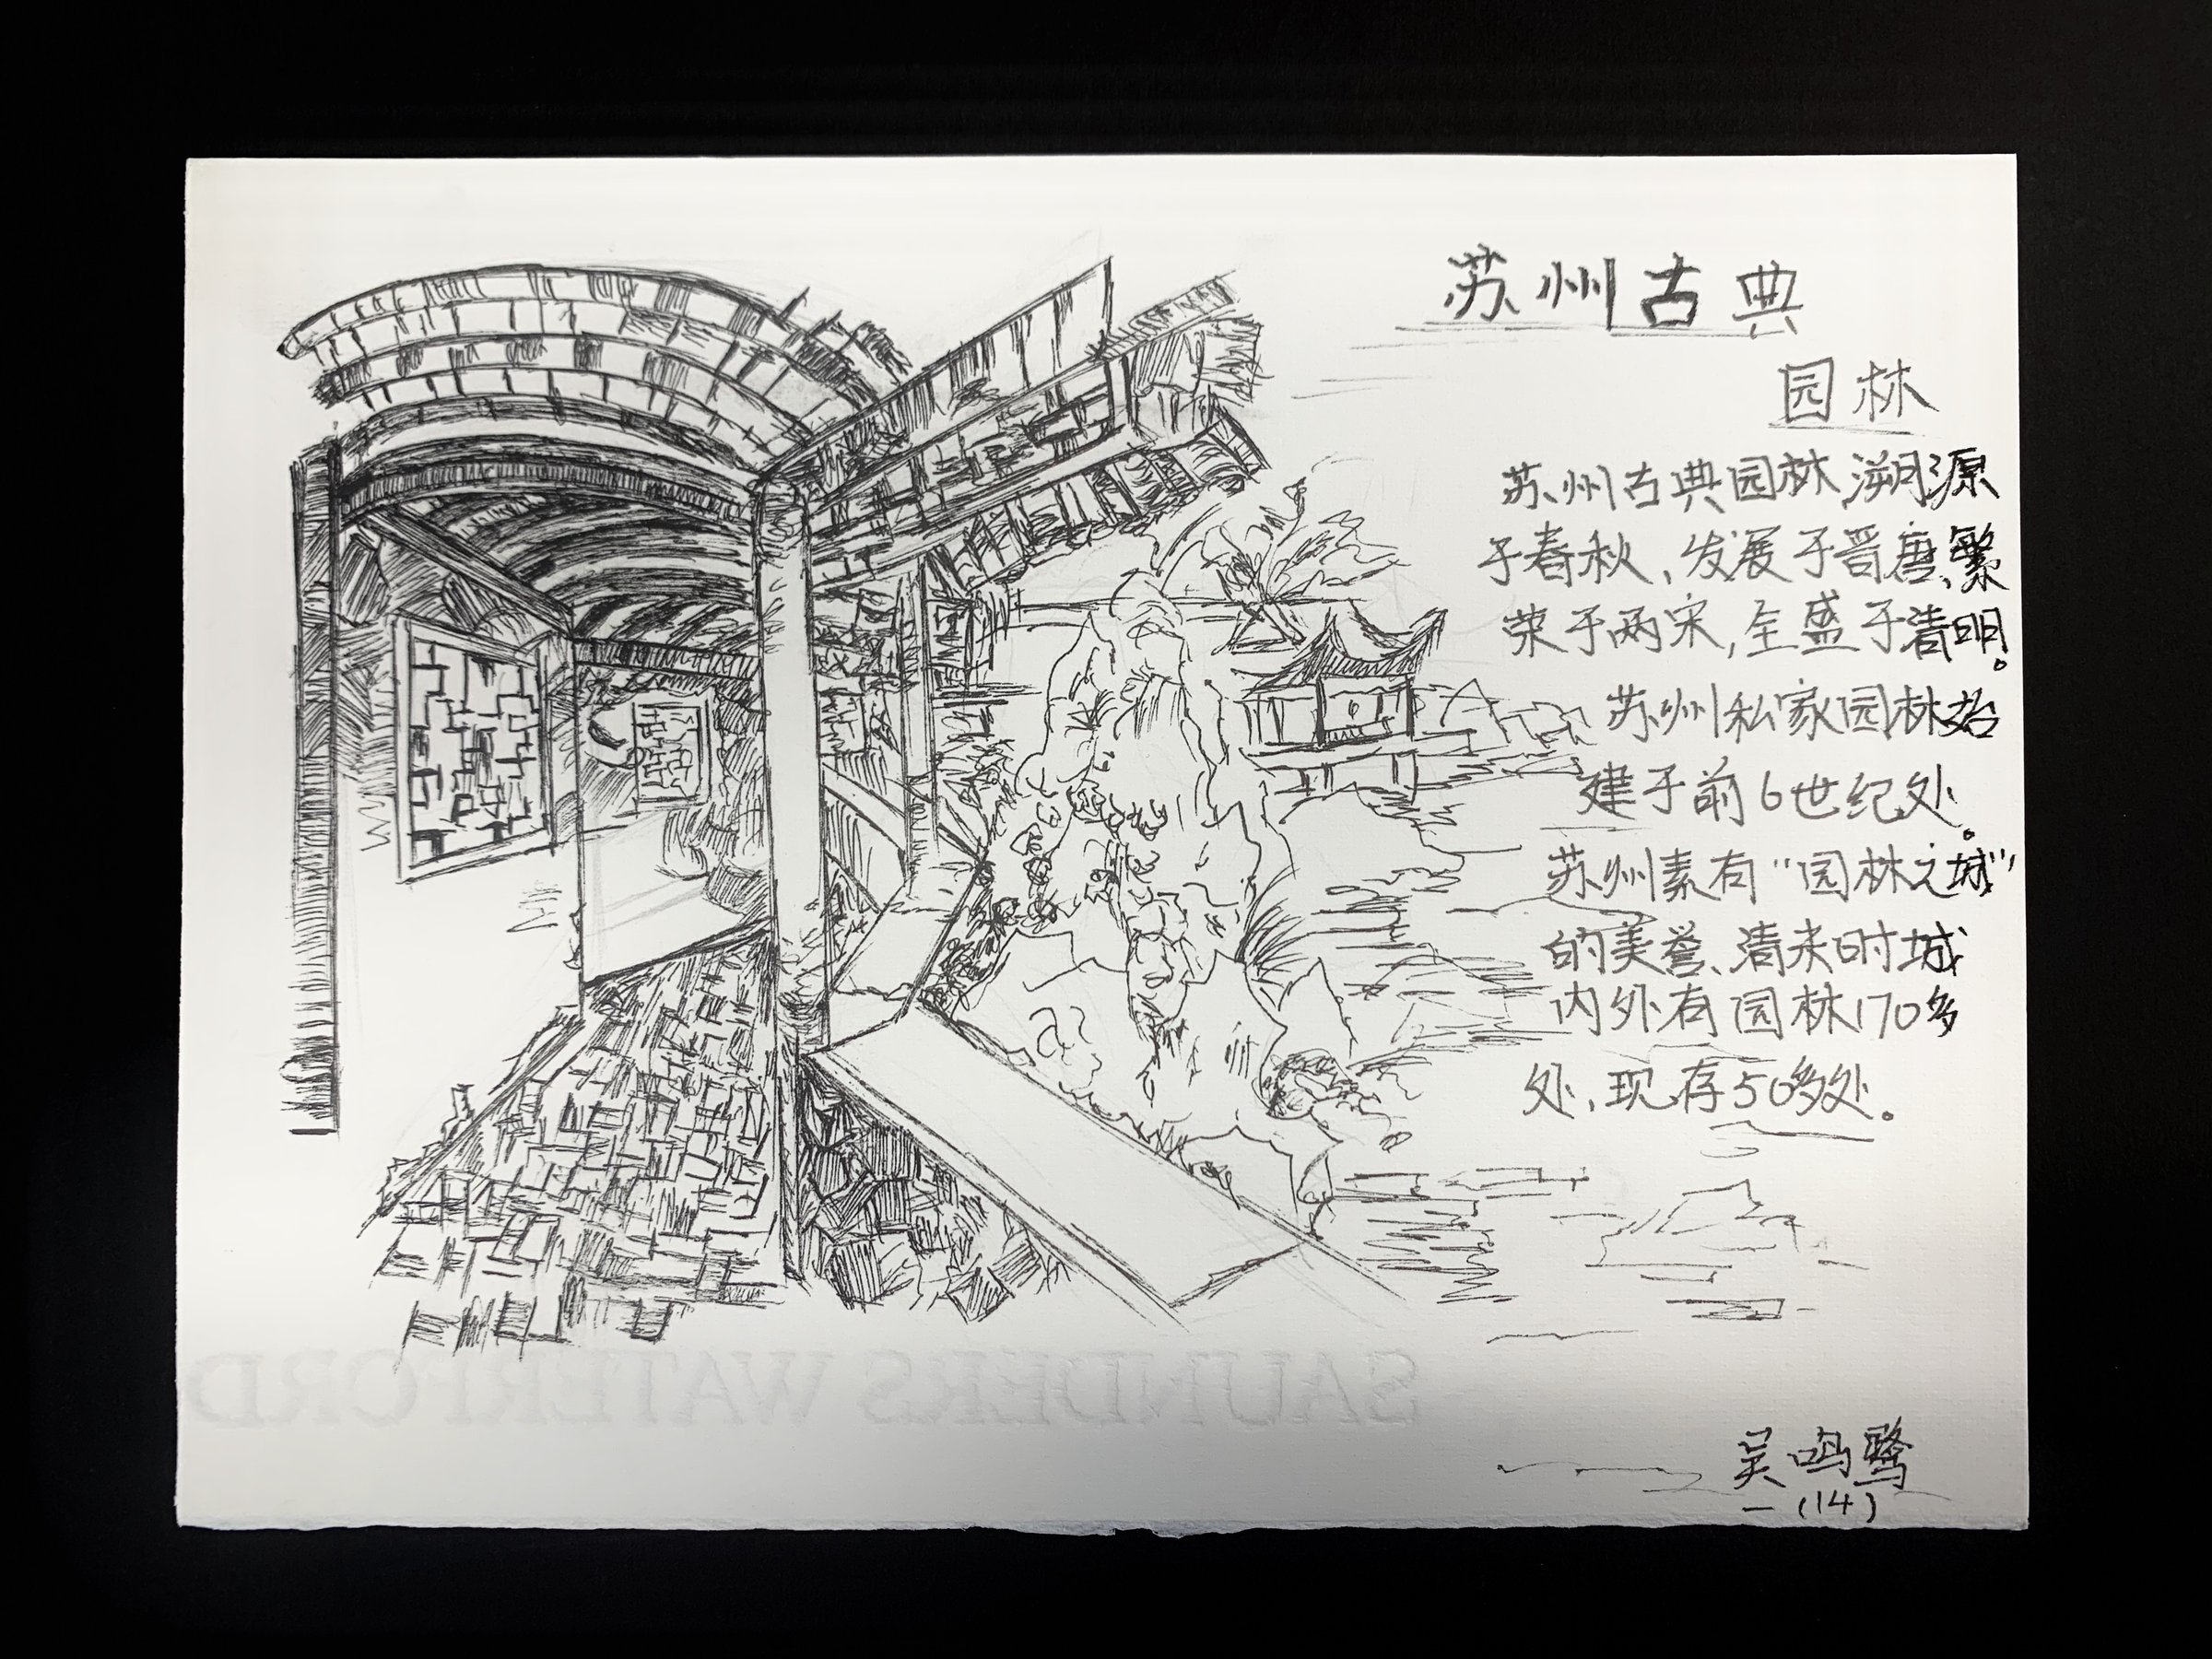 苏州古典
园林
苏州古典园林溯源
于春秋,发展于晋唐,繁
荣于两宋,全盛于清明。
苏州私家园林始
建于前6世纪处。
苏州素有“园林之城”
的美誉、清末时城
内外有园林170多
处,现存50多处。
SAUNDERS WATERFORD
吴鸣鹭
一(14)